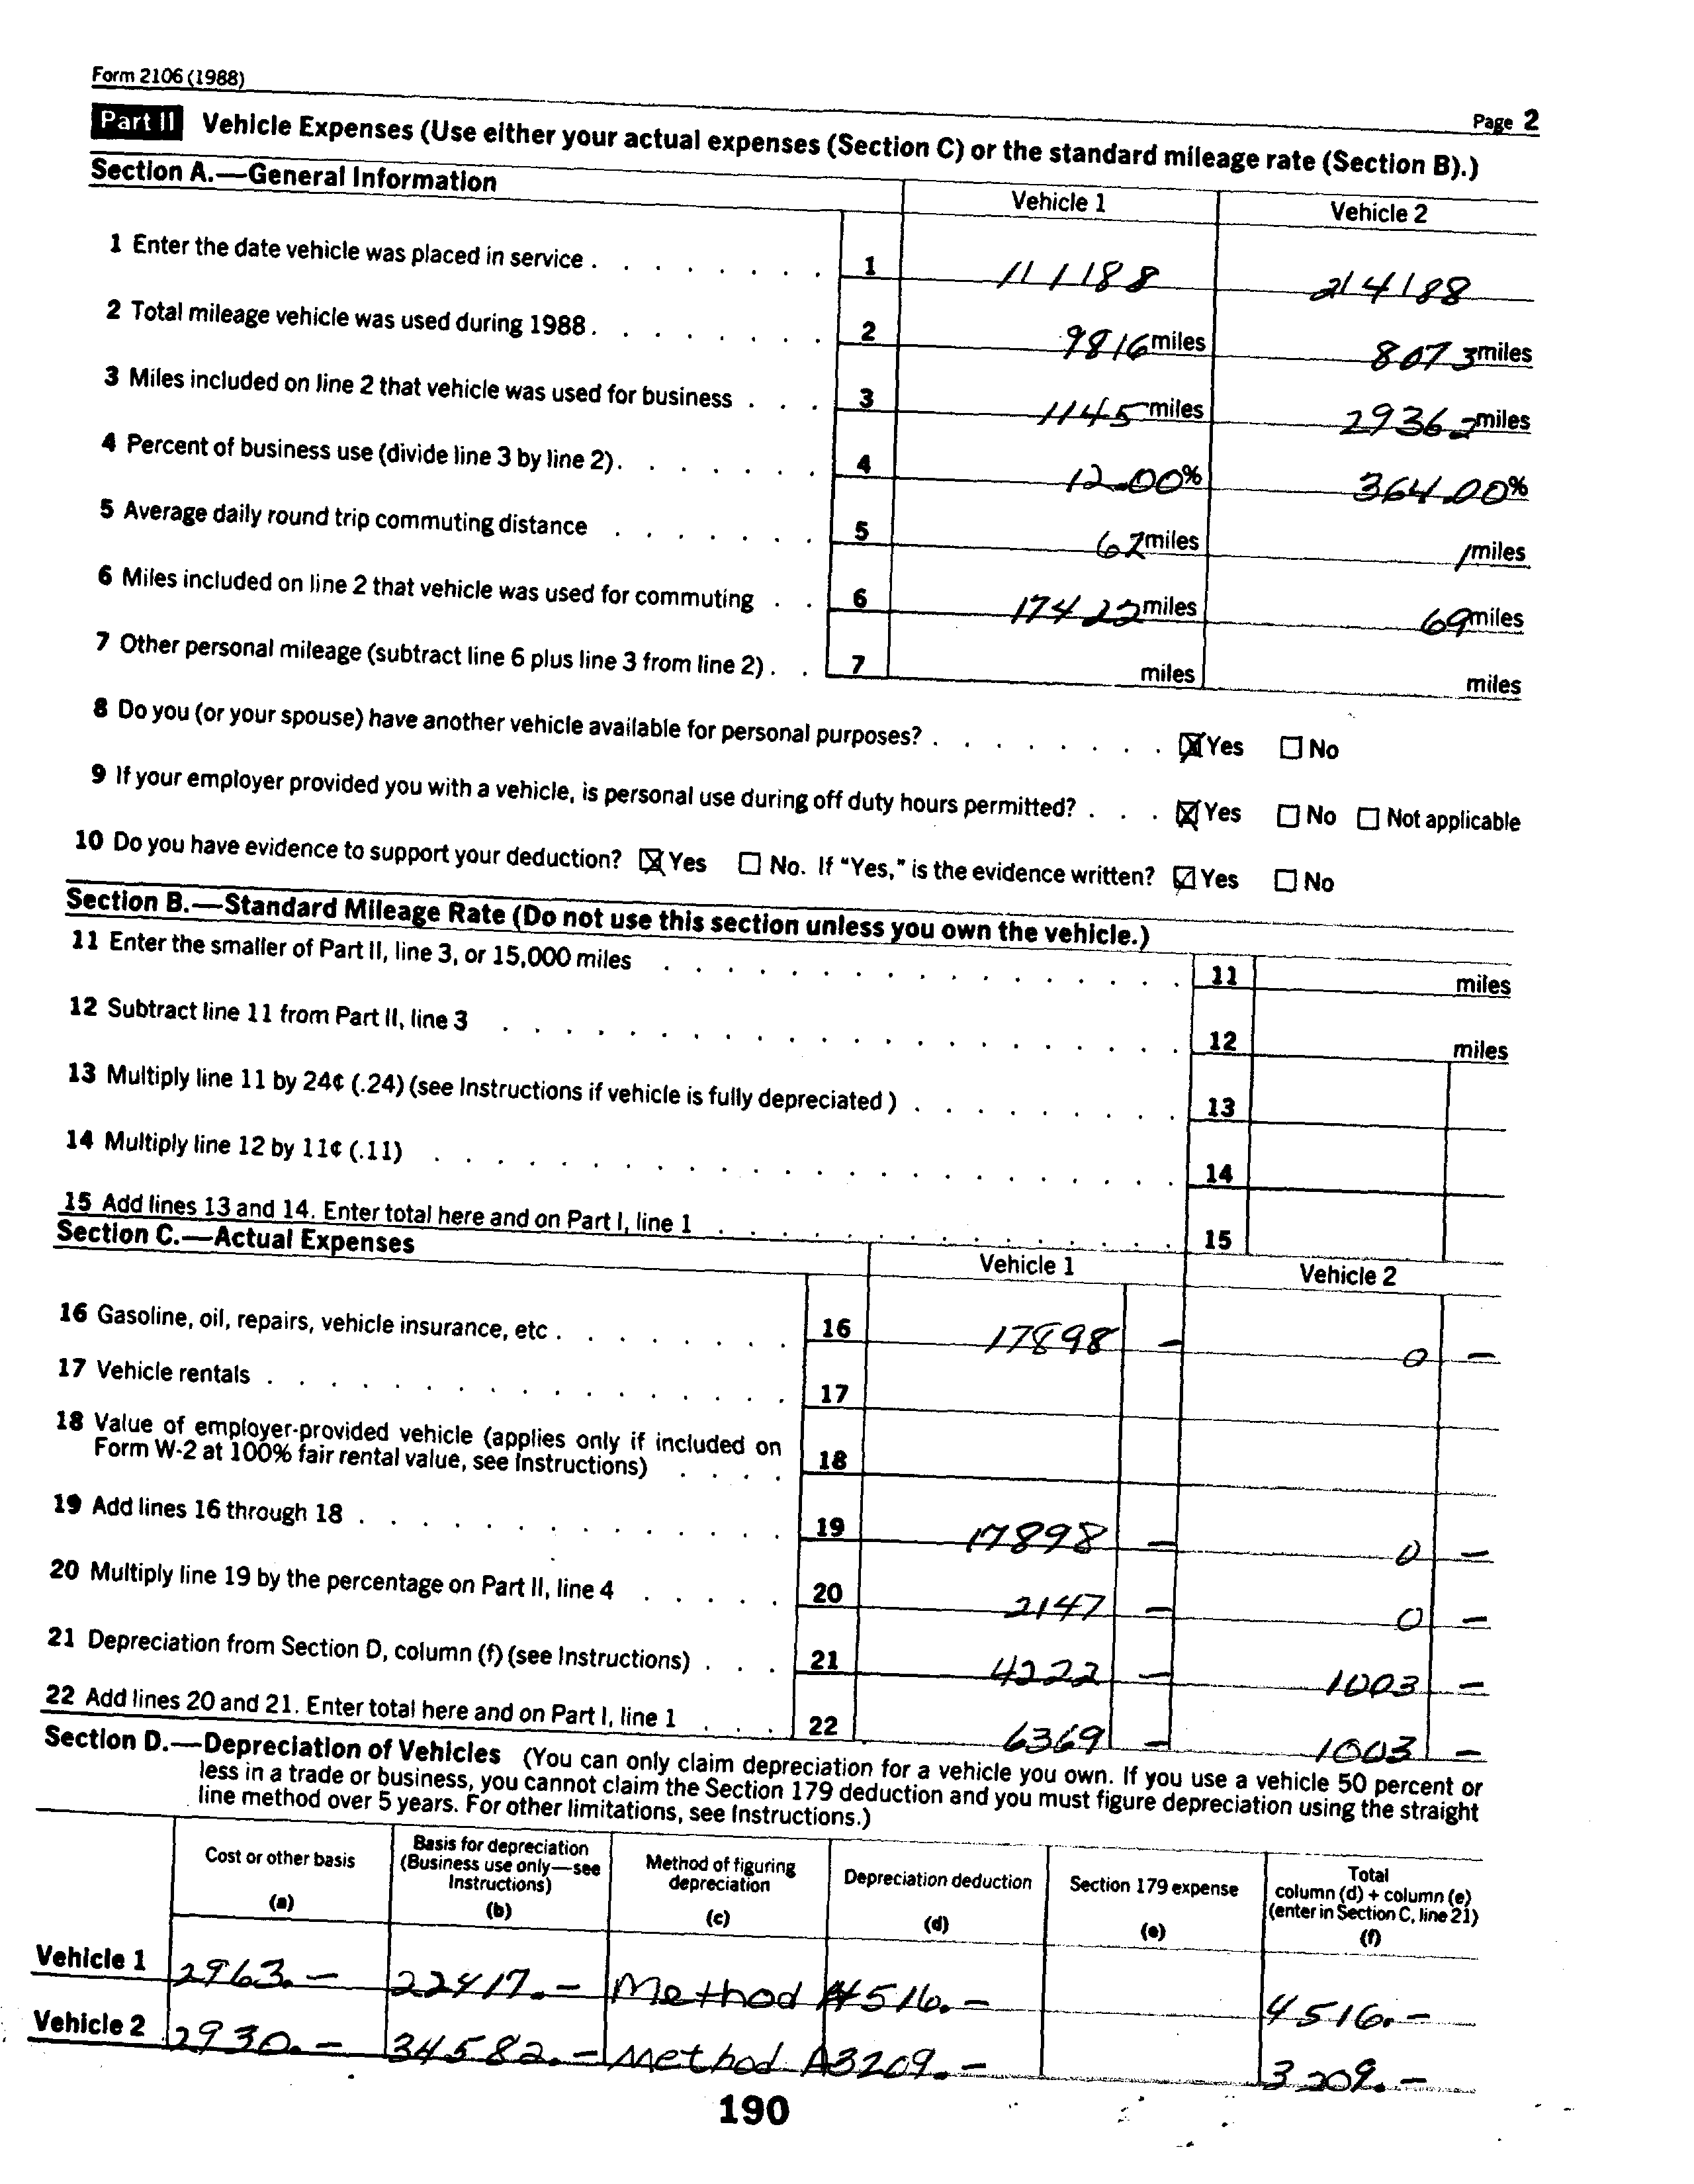 Form 2106 (1988)
Page 2
Part II Vehicle Expenses (Use either your actual expenses (Section C) or the standard mileage rate (Section B).)
Section A.—General Information
Vehicle 1 Vehicle 2
1 Enter the date vehicle was placed in service . . . . . . . . 1 1 / 1 / 88 2 / 4 / 88
2 Total mileage vehicle was used during 1988 . . . . . . . . 2 9816 miles 8073 miles
3 Miles included on line 2 that vehicle was used for business . . . 3 1145 miles 29362 miles
4 Percent of business use (divide line 3 by line 2) . . . . . . . 4 12.00% 364.00%
5 Average daily round trip commuting distance . . . . . . . 5 62 miles 1 miles
6 Miles included on line 2 that vehicle was used for commuting . . 6 17422 miles 69 miles
7 Other personal mileage (subtract line 6 plus line 3 from line 2) . . 7 miles miles
8 Do you (or your spouse) have another vehicle available for personal purposes? . . . . . . . . ☒ Yes ☐ No
9 If your employer provided you with a vehicle, is personal use during off duty hours permitted? . . . ☒ Yes ☐ No ☐ Not applicable
10 Do you have evidence to support your deduction? ☒ Yes ☐ No. If "Yes," is the evidence written? ☑ Yes ☐ No
Section B.—Standard Mileage Rate (Do not use this section unless you own the vehicle.)
11 Enter the smaller of Part II, line 3, or 15,000 miles . . . . . . . . . . . . . . . . . 11 miles
12 Subtract line 11 from Part II, line 3 . . . . . . . . . . . . . . . . . . . . . . 12 miles
13 Multiply line 11 by 24¢ (.24) (see Instructions if vehicle is fully depreciated ) . . . . . . . . . 13
14 Multiply line 12 by 11¢ (.11) . . . . . . . . . . . . . . . . . . . . . . . . 14
15 Add lines 13 and 14. Enter total here and on Part I, line 1 . . . . . . . . . . . . . . . 15
Section C.—Actual Expenses
Vehicle 1 Vehicle 2
16 Gasoline, oil, repairs, vehicle insurance, etc . . . . . . . . 16 17898 – 0 –
17 Vehicle rentals . . . . . . . . . . . . . . . . . 17
18 Value of employer-provided vehicle (applies only if included on
Form W-2 at 100% fair rental value, see Instructions) . . . . 18
19 Add lines 16 through 18 . . . . . . . . . . . . . . 19 17898 – 0 –
20 Multiply line 19 by the percentage on Part II, line 4 . . . . . 20 2147 – 0 –
21 Depreciation from Section D, column (f) (see Instructions) . . . 21 4222 – 1003 –
22 Add lines 20 and 21. Enter total here and on Part I, line 1 . . . 22 6369 – 1003 –
Section D.—Depreciation of Vehicles (You can only claim depreciation for a vehicle you own. If you use a vehicle 50 percent or
less in a trade or business, you cannot claim the Section 179 deduction and you must figure depreciation using the straight
line method over 5 years. For other limitations, see Instructions.)
Cost or other basis (a)
Basis for depreciation (Business use only—see Instructions) (b)
Method of figuring depreciation (c)
Depreciation deduction (d)
Section 179 expense (e)
Total column (d) + column (e) (enter in Section C, line 21) (f)
Vehicle 1 2963.– 22417.– Method A 4516.– 4516.–
Vehicle 2 2930.– 34582.– Method A 3209.– 3209.–
190